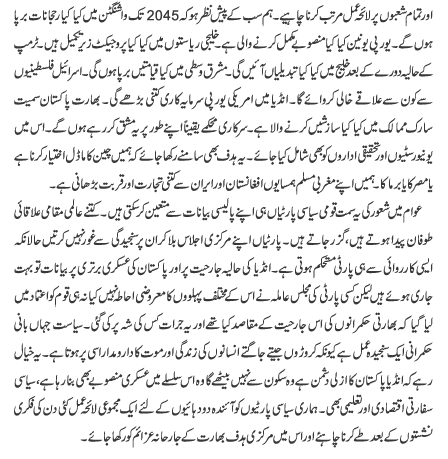 اور تمام شعبوں پر لائحہ عمل مرتب کرنا چاہیے۔ ہم سب کے پیش نظر ہو کہ 2045 تک واشنگٹن میں کیا کیا رجحانات برپا
ہوں گے۔ یورپی یونین کیا کیا منصوبے مکمل کرنے والی ہے۔ خلیجی ریاستوں میں کیا کیا پروجیکٹ زیر تکمیل ہیں۔ ٹرمپ کے
حالیہ دورے کے بعد خلیج میں کیا کیا تبدیلیاں آئیں گی۔ مشرق وسطیٰ میں کیا قیامتیں برپا ہوں گی۔ اسرائیل فلسطینیوں
سے کون سے علاقے خالی کروائے گا۔ انڈیا میں امریکی یورپی سرمایہ کاری کتنی بڑھے گی۔ بھارت پاکستان سمیت
سارک ممالک میں کیا کیا سازشیں کرنے والا ہے۔ سرکاری محکمے یقیناً اپنے طور پر یہ مشق کر رہے ہوں گے۔ اس میں
یونیورسٹیوں اور تحقیقی اداروں کو بھی شامل کیا جائے۔ یہ ہدف بھی سامنے رکھا جائے کہ ہمیں چین کا ماڈل اختیار کرنا ہے
یا مصر کا یا برما کا۔ ہمیں اپنے مغربی مسلم ہمسایوں افغانستان اور ایران سے کتنی تجارت اور قربت بڑھانی ہے۔
عوام میں شعور کی یہ سمت قومی سیاسی پارٹیاں ہی اپنے پالیسی بیانات سے متعین کر سکتی ہیں۔ کتنے عالمی مقامی علاقائی
طوفان پیدا ہوتے ہیں، گزر جاتے ہیں۔ پارٹیاں اپنے مرکزی اجلاس بلا کر ان پر سنجیدگی سے غور نہیں کرتیں حالانکہ
ایسی کارروائی سے ہی پارٹی مستحکم ہوتی ہے۔ انڈیا کی حالیہ جارحیت پر اور پاکستان کی عسکری برتری پر بیانات تو بہت
جاری ہوئے ہیں لیکن کسی پارٹی کی مجلس عاملہ نے اس کے مختلف پہلوؤں کا معروضی احاطہ نہیں کیا نہ ہی قوم کو اعتماد میں
لیا گیا کہ بھارتی حکمرانوں کی اس جارحیت کے مقاصد کیا تھے اور یہ جرات کس کی شہ پر کی گئی۔ سیاست جہاں بانی
حکمرانی ایک سنجیدہ عمل ہے کیونکہ کروڑوں جیتے جاگتے انسانوں کی زندگی اور موت کا دارومدار اسی پر ہوتا ہے۔ یہ خیال
رہے کہ انڈیا پاکستان کا ازلی دشمن ہے وہ سکون سے نہیں بیٹھے گا وہ اس سلسلے میں عسکری منصوبے بھی بنا رہا ہے، سیاسی
سفارتی اقتصادی اور تعلیمی بھی۔ ہماری سیاسی پارٹیوں کو آئندہ دو دہائیوں کے لئے ایک مجموعی لائحہ عمل کئی دن کی فکری
نشستوں کے بعد طے کرنا چاہئے اور اس میں مرکزی ہدف بھارت کے جارحانہ عزائم کو رکھا جائے۔